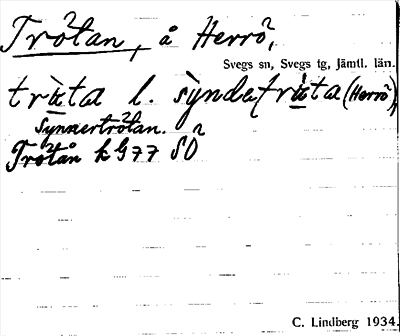 Tròtan, å Herrò,
Svegs sn, Svegs tg, Jämtl. län.
trät̀a l. sỳndetràta (Herrò),
Synnertròtan.
Tròtån k G77 SO
C. Lindberg 1934.